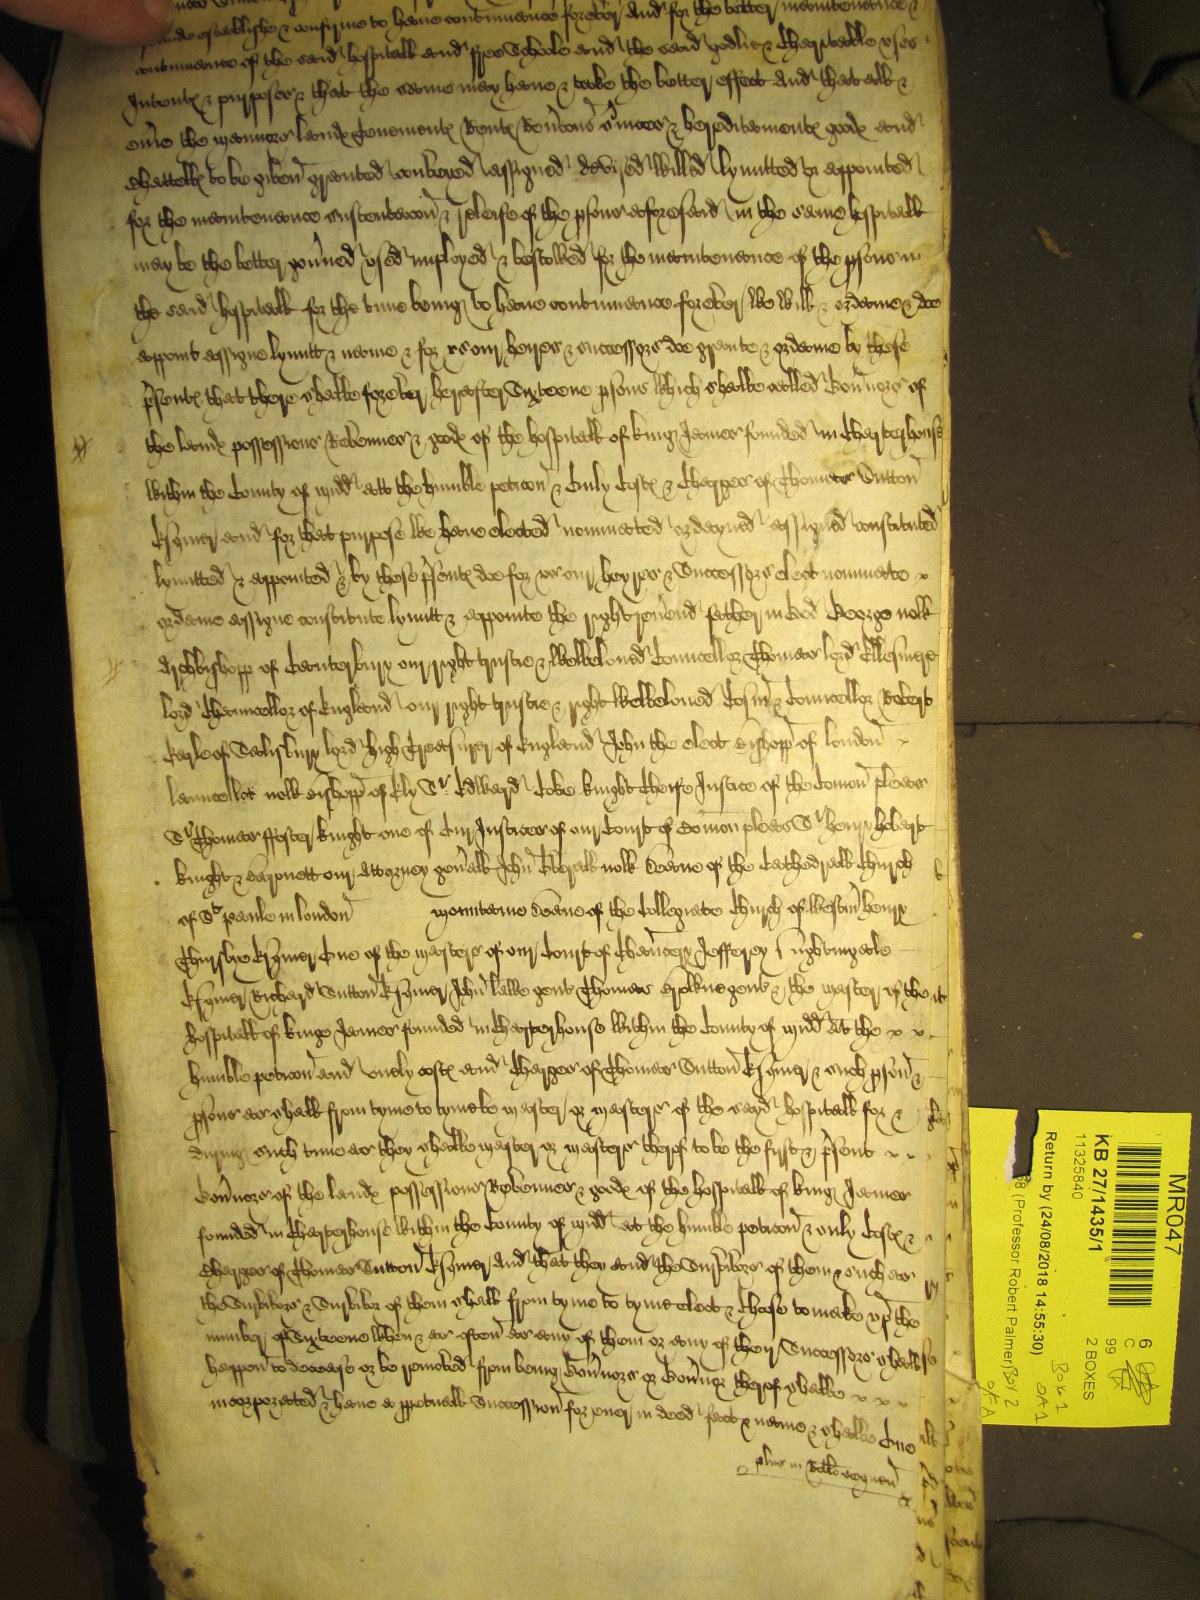 establishe & confirme to have contynuance forever And for the better maintenance &
contynuance of the said hospitall and free Schoole and the said godlie & charitable uses
Intent℮ & purposes & that the same may have & take the better effect And that all &
the mannors land℮ tenement℮ Rent℮ & hereditament℮ good℮ and
chattell℮ to be given graunted conveyed assigned devised willed lymitted or appointed
for the maintenance sustentacon & releife of the psons aforesaid in the same hospitall
may be the better gov'ned used imployed & bestowed for the maintenance of the psons in
the said hospitall for the time being to have contynuance forever We will & ordaine & doe
appoint assigne lymitt & name & for us our heires & successors doe graunte & ordaine by these
p'sent℮ that there shalbe forever hereafter Sixteene psons which shalbe called Gov'nors of
the land℮ possessions Revenues & good℮ of the hospitall of king James founded in Charterhouse
within the County of Midd att the humble peticon & Only Cost℮ & Charges of Thomas Sutton
Esquier and for that purpose we have elected nominated ordayned assigned constituted
lymitted & appointed & by these p'sent℮ doe for us our heyres & Successors elect nominate
ordaine assigne constitute lymitt & appointe the right rev'end father in God George nowe
Archbishopp of Canterbury our right trustie & Welbeloved Councellor Thomas lord Ellesmere
lord Chauncellor of England our right trustie & right Welbeloved Cosin & Councellor Robert
Earle of Salisbury lord high Treasurer of England John the elect Bishopp of london
launcellot nowe Bishopp of Ely Sr Edward Coke knight Cheife Justice of the Comon pleas
Sr Thomas ffoster knight one of Our Justices of our Court of Comon pleas Sr henry hobert
knight & Baronett our Attorney gen'all John Overall nowe Deane of the Cathedrall Church
of St paule in london mountaine Deane of the Collegiate Church of Westm' henry
Thursbie Esquier One of the Masters of our Court of Chauncery Jefferey Nightingale
Esquier Richard Sutton Esquier John lawe gent Thomas Browne gent & the Master of the
hospitall of kinge James founded in Charterhouse within the County of Midd At the
humble peticon and onely cost℮ and charges of Thomas Sutton Esquier & such pson &
psons as shall from tyme to tyme be Master or Masters of the sayd hospitall for &
during such time as they shalbe Master or Masters therof to be the first & p'sent
Gov'nors of the land℮ possessions Revenues & good℮ of the hospitall of king James
founded in Charterhouse within the County of Midd at the humble peticon & only Cost℮ &
Charges of Thomas Sutton Esquier And that they and the Survivors of them & such as
the Survivors & Survivor of them shall from tyme to tyme elect & chose to make up the
number of Sixteene when & as often as any of them or any of their Successors shall
happen to decease or be removed from being Gov'nors or Gov'nor therof shalbe
incorporated & have a p'petuall Succession for ever in deed fact & name & shalbe One
plus in Rotlo sequen
MR047
KB 27/1435/1
11325840
Return by (24/08/2018 14:55:30)
(Professor Robert Palmer)
6
C
99
2 BOXES
Box 1
Box 2